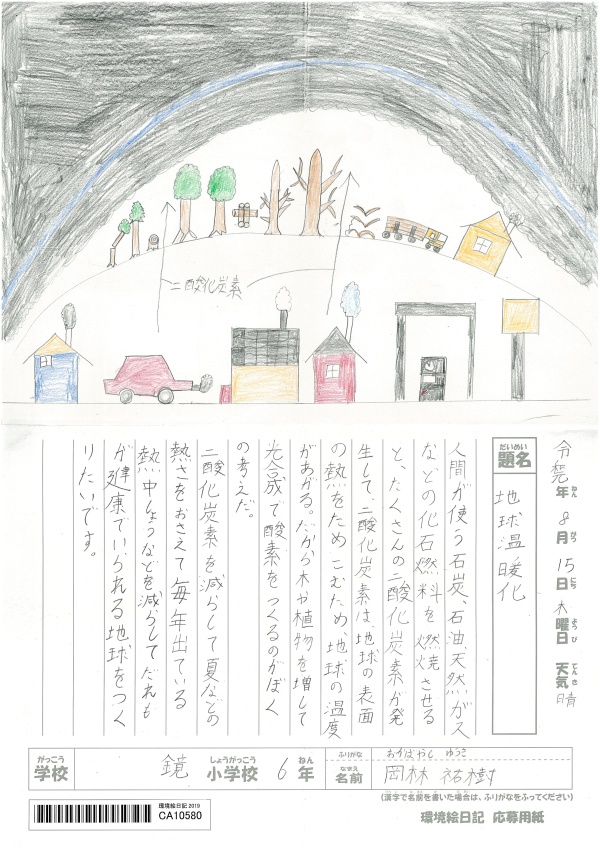 二酸化炭素
令和元年 8月 15日 木曜日 天気 晴
ねん がつ にち ようび てんき
だいめい
題名
地球温暖化
人間が使う石炭、石油、天然ガス
などの化石燃料を燃焼させる
と、たくさんの二酸化炭素が発
生して、二酸化炭素は地球の表面
の熱をためこむため、地球の温度
があがる。だから木や植物を増して
光合成で酸素をつくるのがぼく
の考えだ。
二酸化炭素を減らして夏などの
熱さをおさえて毎年出ている
熱中しょうなどを減らしてだれも
が健康でいられる地球をつく
りたいです。
がっこう しょうがっこう ねん
学校 鏡 小学校 6年
ふりがな おかばやし ゆうき
なまえ
名前 岡林 祐樹
(漢字で名前を書いた場合は、ふりがなをふってください)
環境絵日記 2019
CA10580
環境絵日記 応募用紙